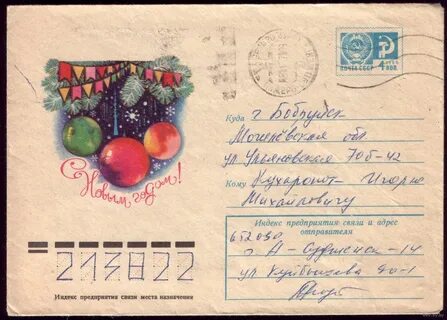 ПОЧТА СССР
4 КОП
С Новым годом!
Куда г. Бобруйск
Могилёвская обл.
ул. Ульяновская 70б-42
Кому Игорю
Михайловичу
Индекс предприятия связи и адрес
отправителя
652030
г. А-Судженск-14
ул. Куйбышева 90-1
213822
Индекс предприятия связи места назначения